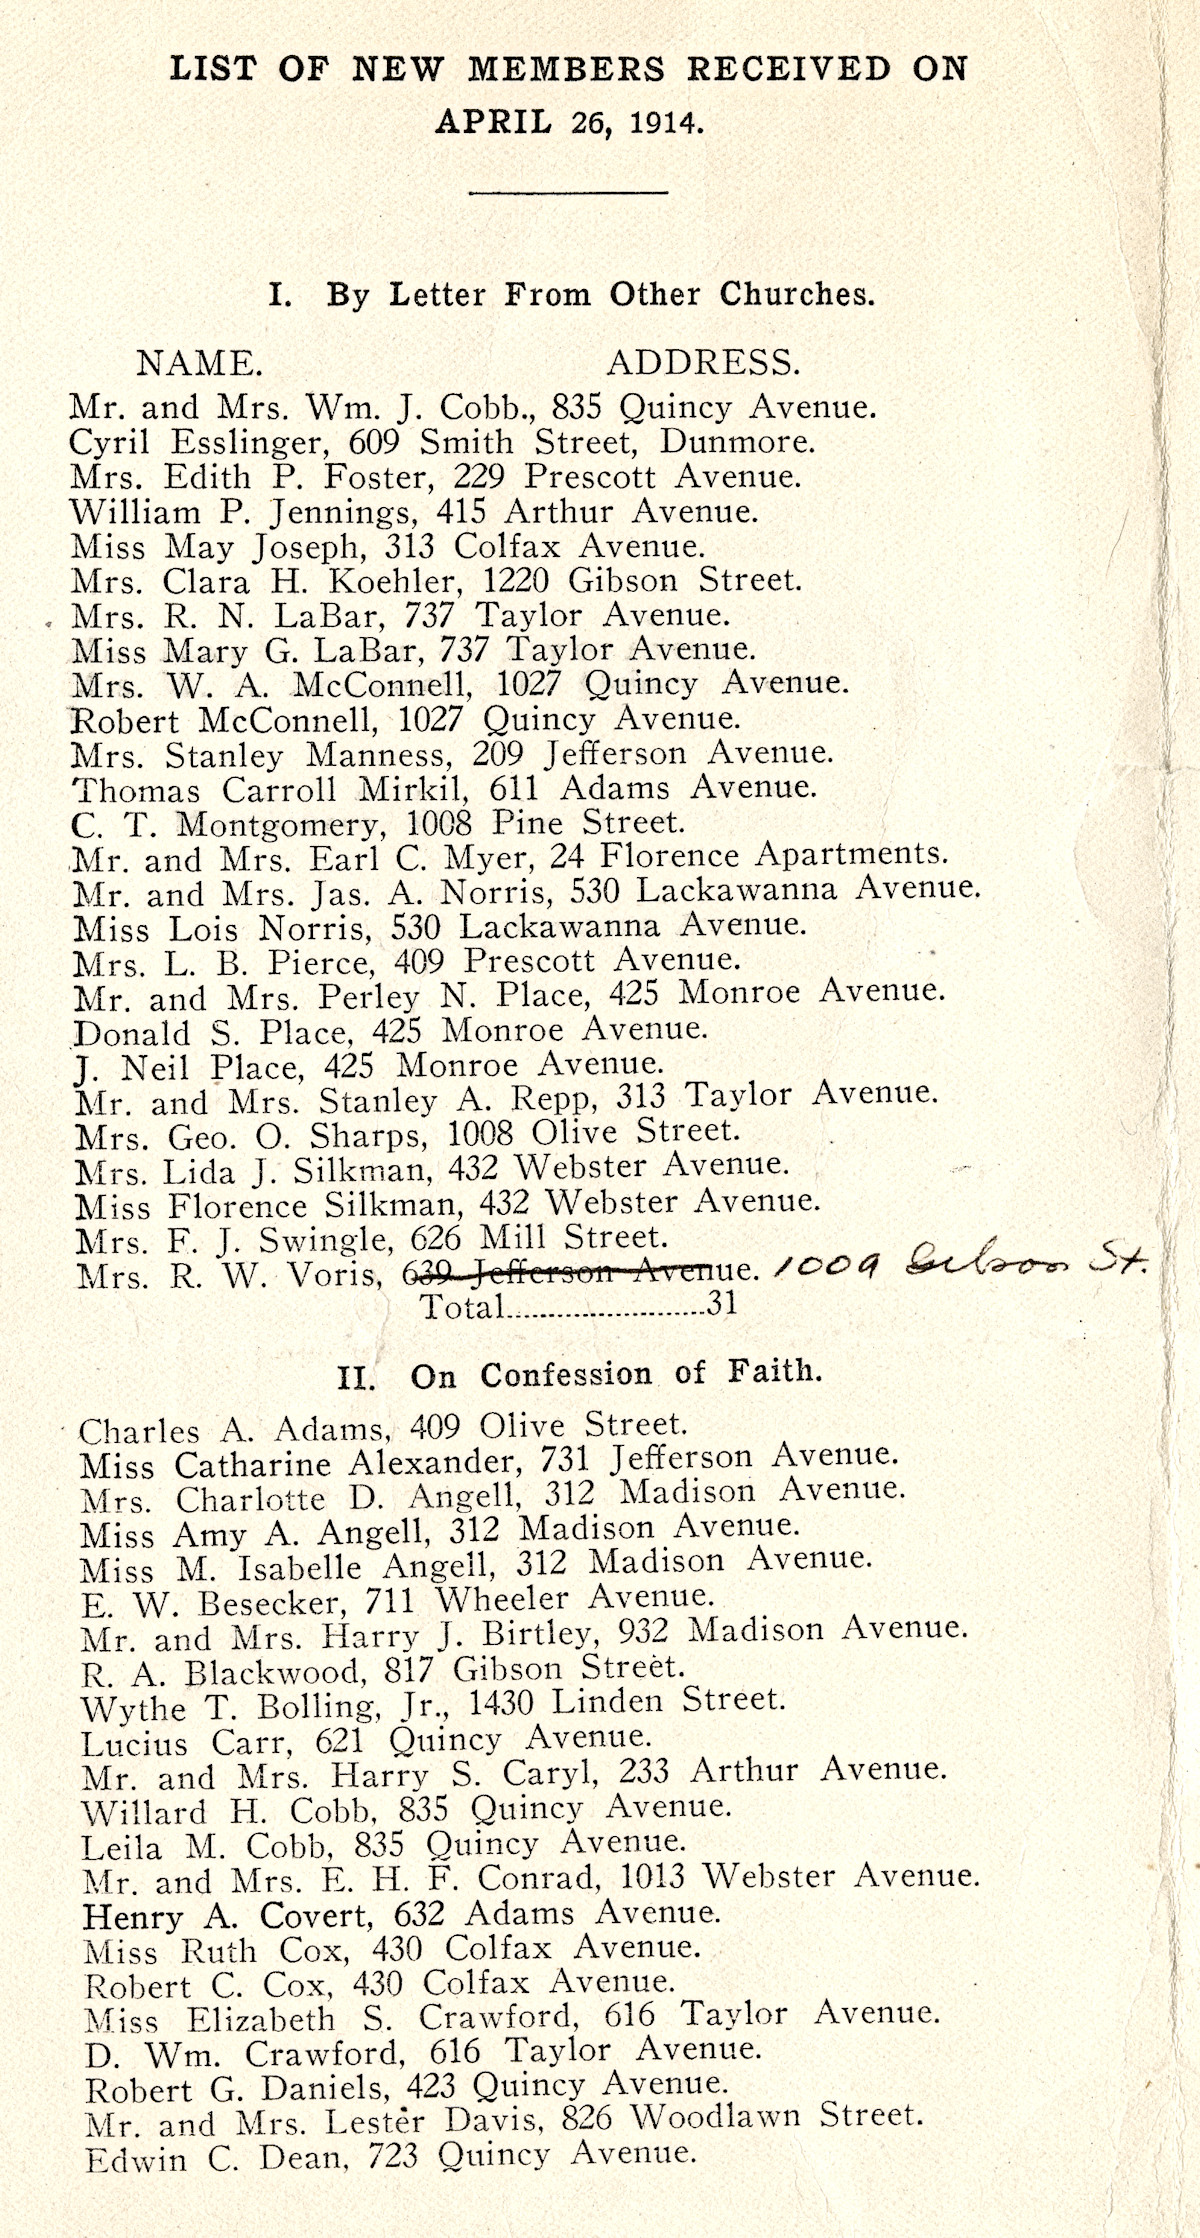 LIST OF NEW MEMBERS RECEIVED ON
APRIL 26, 1914.
I. By Letter From Other Churches.
NAME. ADDRESS.
Mr. and Mrs. Wm. J. Cobb., 835 Quincy Avenue.
Cyril Esslinger, 609 Smith Street, Dunmore.
Mrs. Edith P. Foster, 229 Prescott Avenue.
William P. Jennings, 415 Arthur Avenue.
Miss May Joseph, 313 Colfax Avenue.
Mrs. Clara H. Koehler, 1220 Gibson Street.
Mrs. R. N. LaBar, 737 Taylor Avenue.
Miss Mary G. LaBar, 737 Taylor Avenue.
Mrs. W. A. McConnell, 1027 Quincy Avenue.
Robert McConnell, 1027 Quincy Avenue.
Mrs. Stanley Manness, 209 Jefferson Avenue.
Thomas Carroll Mirkil, 611 Adams Avenue.
C. T. Montgomery, 1008 Pine Street.
Mr. and Mrs. Earl C. Myer, 24 Florence Apartments.
Mr. and Mrs. Jas. A. Norris, 530 Lackawanna Avenue.
Miss Lois Norris, 530 Lackawanna Avenue.
Mrs. L. B. Pierce, 409 Prescott Avenue.
Mr. and Mrs. Perley N. Place, 425 Monroe Avenue.
Donald S. Place, 425 Monroe Avenue.
J. Neil Place, 425 Monroe Avenue.
Mr. and Mrs. Stanley A. Repp, 313 Taylor Avenue.
Mrs. Geo. O. Sharps, 1008 Olive Street.
Mrs. Lida J. Silkman, 432 Webster Avenue.
Miss Florence Silkman, 432 Webster Avenue.
Mrs. F. J. Swingle, 626 Mill Street.
Mrs. R. W. Voris, 639 Jefferson Avenue. 1009 Gibson St.
Total........................31
II. On Confession of Faith.
Charles A. Adams, 409 Olive Street.
Miss Catharine Alexander, 731 Jefferson Avenue.
Mrs. Charlotte D. Angell, 312 Madison Avenue.
Miss Amy A. Angell, 312 Madison Avenue.
Miss M. Isabelle Angell, 312 Madison Avenue.
E. W. Besecker, 711 Wheeler Avenue.
Mr. and Mrs. Harry J. Birtley, 932 Madison Avenue.
R. A. Blackwood, 817 Gibson Street.
Wythe T. Bolling, Jr., 1430 Linden Street.
Lucius Carr, 621 Quincy Avenue.
Mr. and Mrs. Harry S. Caryl, 233 Arthur Avenue.
Willard H. Cobb, 835 Quincy Avenue.
Leila M. Cobb, 835 Quincy Avenue.
Mr. and Mrs. E. H. F. Conrad, 1013 Webster Avenue.
Henry A. Covert, 632 Adams Avenue.
Miss Ruth Cox, 430 Colfax Avenue.
Robert C. Cox, 430 Colfax Avenue.
Miss Elizabeth S. Crawford, 616 Taylor Avenue.
D. Wm. Crawford, 616 Taylor Avenue.
Robert G. Daniels, 423 Quincy Avenue.
Mr. and Mrs. Lester Davis, 826 Woodlawn Street.
Edwin C. Dean, 723 Quincy Avenue.